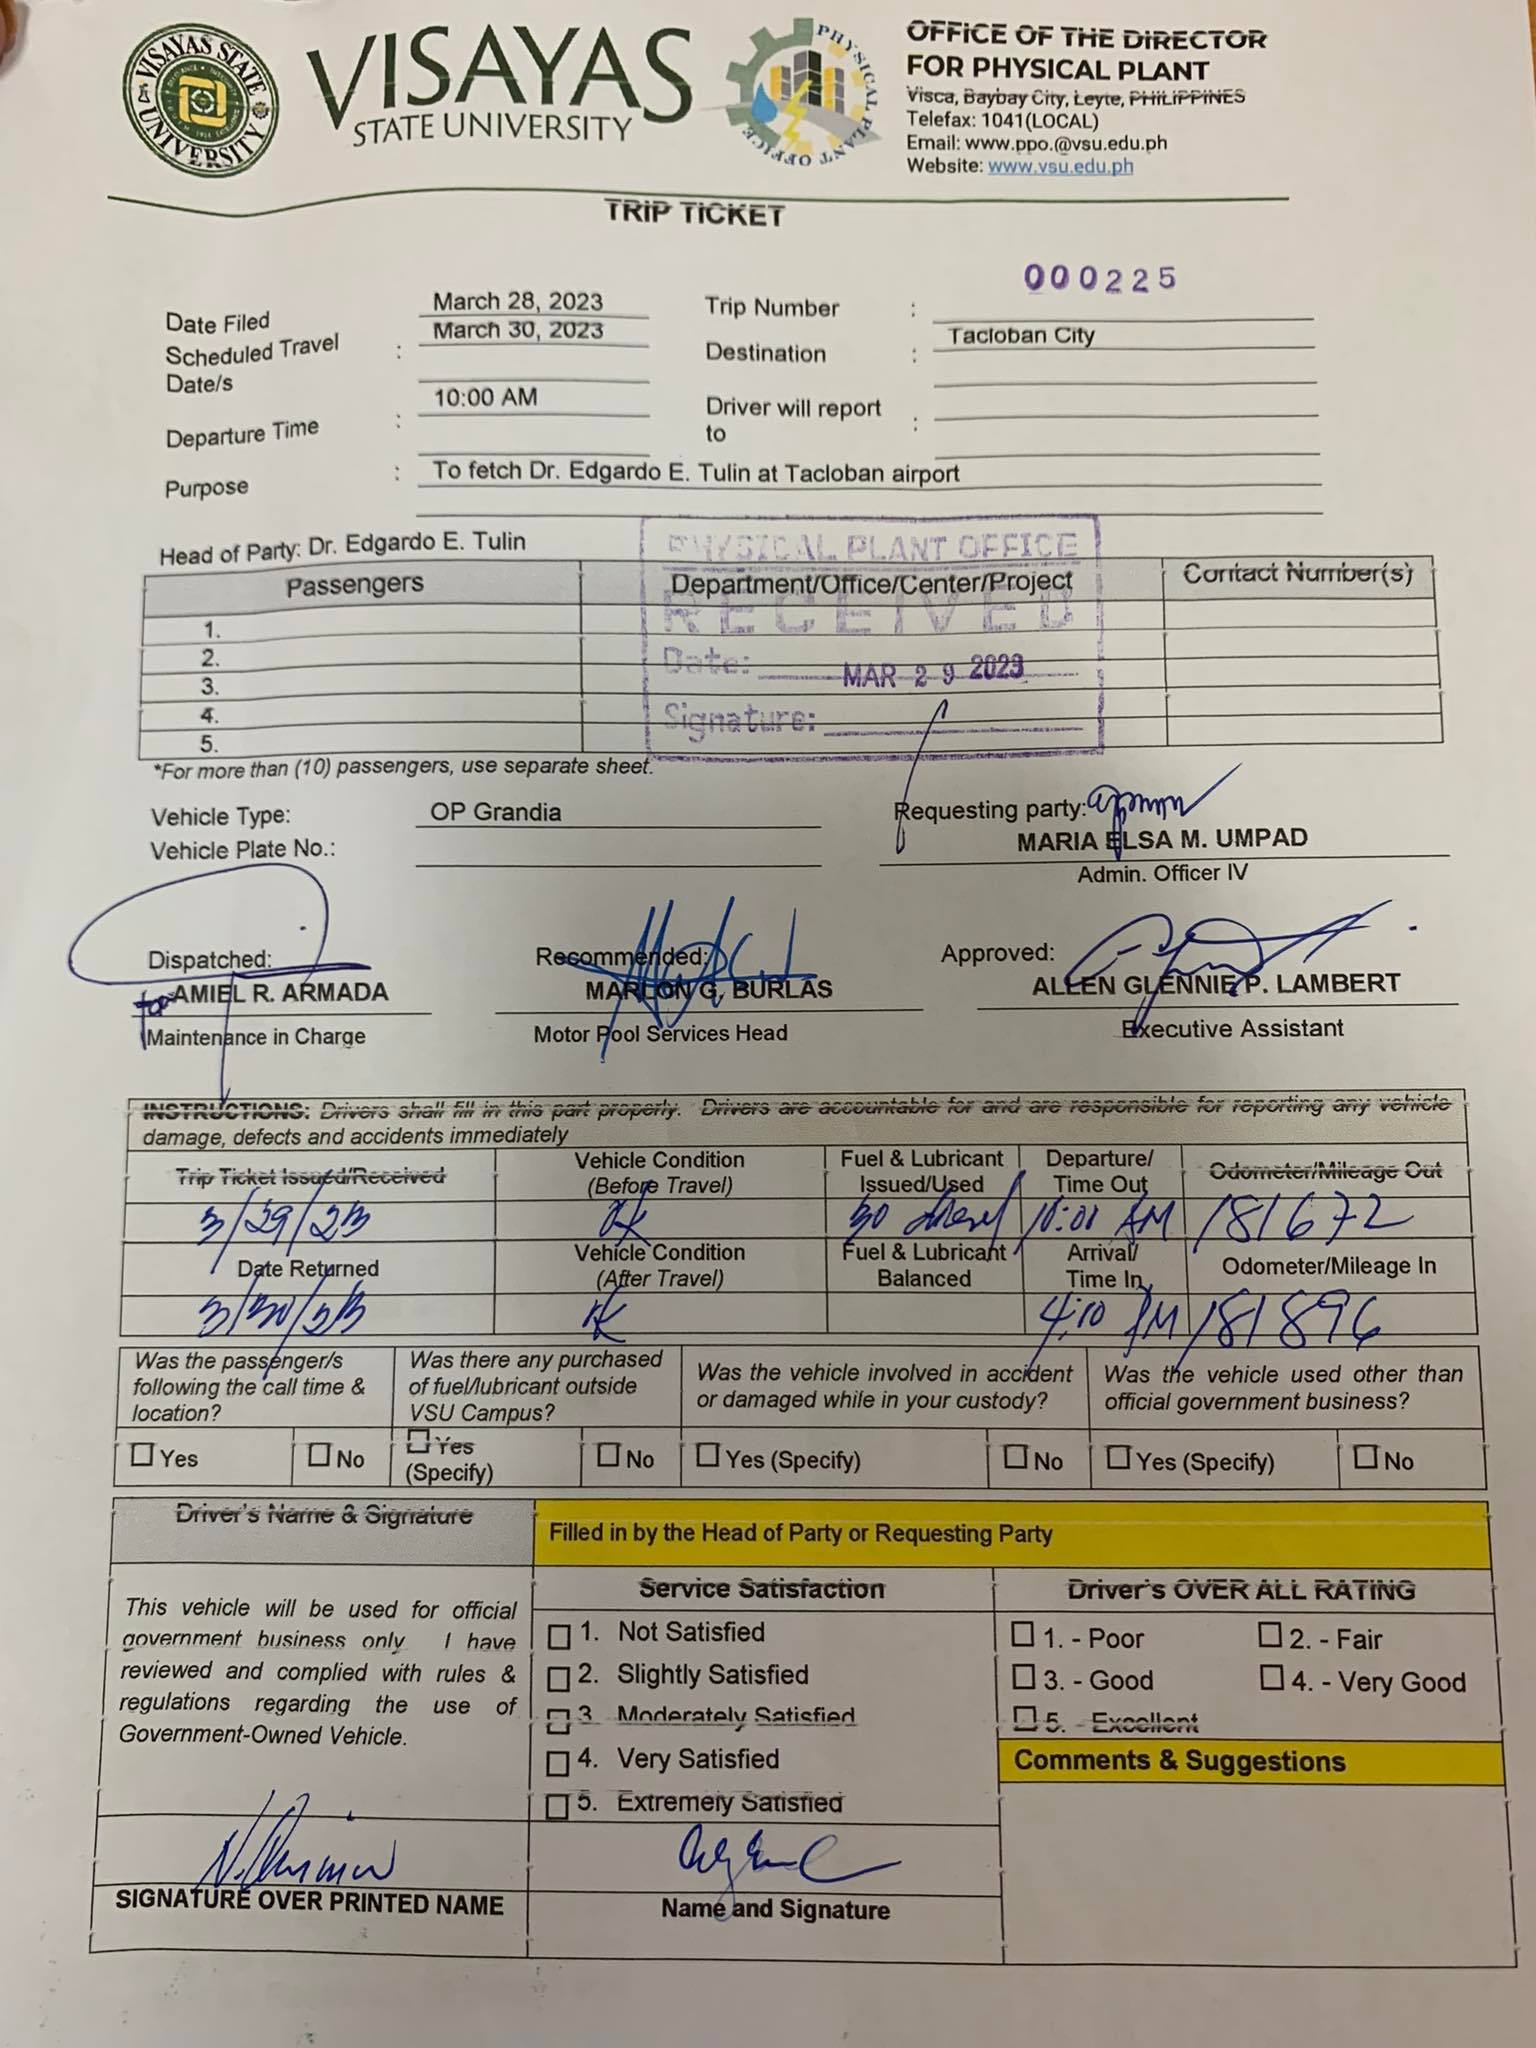 VISAYAS STATE UNIVERSITY
VISAYAS
STATE UNIVERSITY
PHYSICAL PLANT OFFICE
OFFICE OF THE DIRECTOR
FOR PHYSICAL PLANT
Visca, Baybay City, Leyte, PHILIPPINES
Telefax: 1041(LOCAL)
Email: www.ppo.@vsu.edu.ph
Website: www.vsu.edu.ph
TRIP TICKET
000225
Date Filed March 28, 2023 Trip Number :
Scheduled Travel Date/s : March 30, 2023 Destination : Tacloban City
Departure Time : 10:00 AM Driver will report to :
Purpose : To fetch Dr. Edgardo E. Tulin at Tacloban airport
Head of Party: Dr. Edgardo E. Tulin
PHYSICAL PLANT OFFICE
RECEIVED
Date: MAR 29 2023
Signature:
Passengers Department/Office/Center/Project Contact Number(s)
1.
2.
3.
4.
5.
*For more than (10) passengers, use separate sheet.
Vehicle Type: OP Grandia Requesting party:
Vehicle Plate No.: MARIA ELSA M. UMPAD
Admin. Officer IV
Dispatched: Recommended: Approved:
AMIEL R. ARMADA MARLON G. BURLAS ALLEN GLENNIE P. LAMBERT
Maintenance in Charge Motor Pool Services Head Executive Assistant
INSTRUCTIONS: Drivers shall fill in this part properly. Drivers are accountable for and are responsible for reporting any vehicle
damage, defects and accidents immediately
Trip Ticket Issued/Received Vehicle Condition (Before Travel) Fuel & Lubricant Issued/Used Departure/ Time Out Odometer/Mileage Out
3/29/23 OK 30 diesel 10:00 AM 181672
Date Returned Vehicle Condition (After Travel) Fuel & Lubricant Balanced Arrival/ Time In Odometer/Mileage In
3/30/23 OK 4:10 PM 181896
Was the passenger/s following the call time & location? Was there any purchased of fuel/lubricant outside VSU Campus? Was the vehicle involved in accident or damaged while in your custody? Was the vehicle used other than official government business?
Yes No Yes (Specify) No Yes (Specify) No Yes (Specify) No
Driver's Name & Signature
Filled in by the Head of Party or Requesting Party
This vehicle will be used for official
government business only. I have
reviewed and complied with rules &
regulations regarding the use of
Government-Owned Vehicle.
SIGNATURE OVER PRINTED NAME
Service Satisfaction
1. Not Satisfied
2. Slightly Satisfied
3. Moderately Satisfied
4. Very Satisfied
5. Extremely Satisfied
Name and Signature
Driver's OVER ALL RATING
1. - Poor 2. - Fair
3. - Good 4. - Very Good
5. - Excellent
Comments & Suggestions